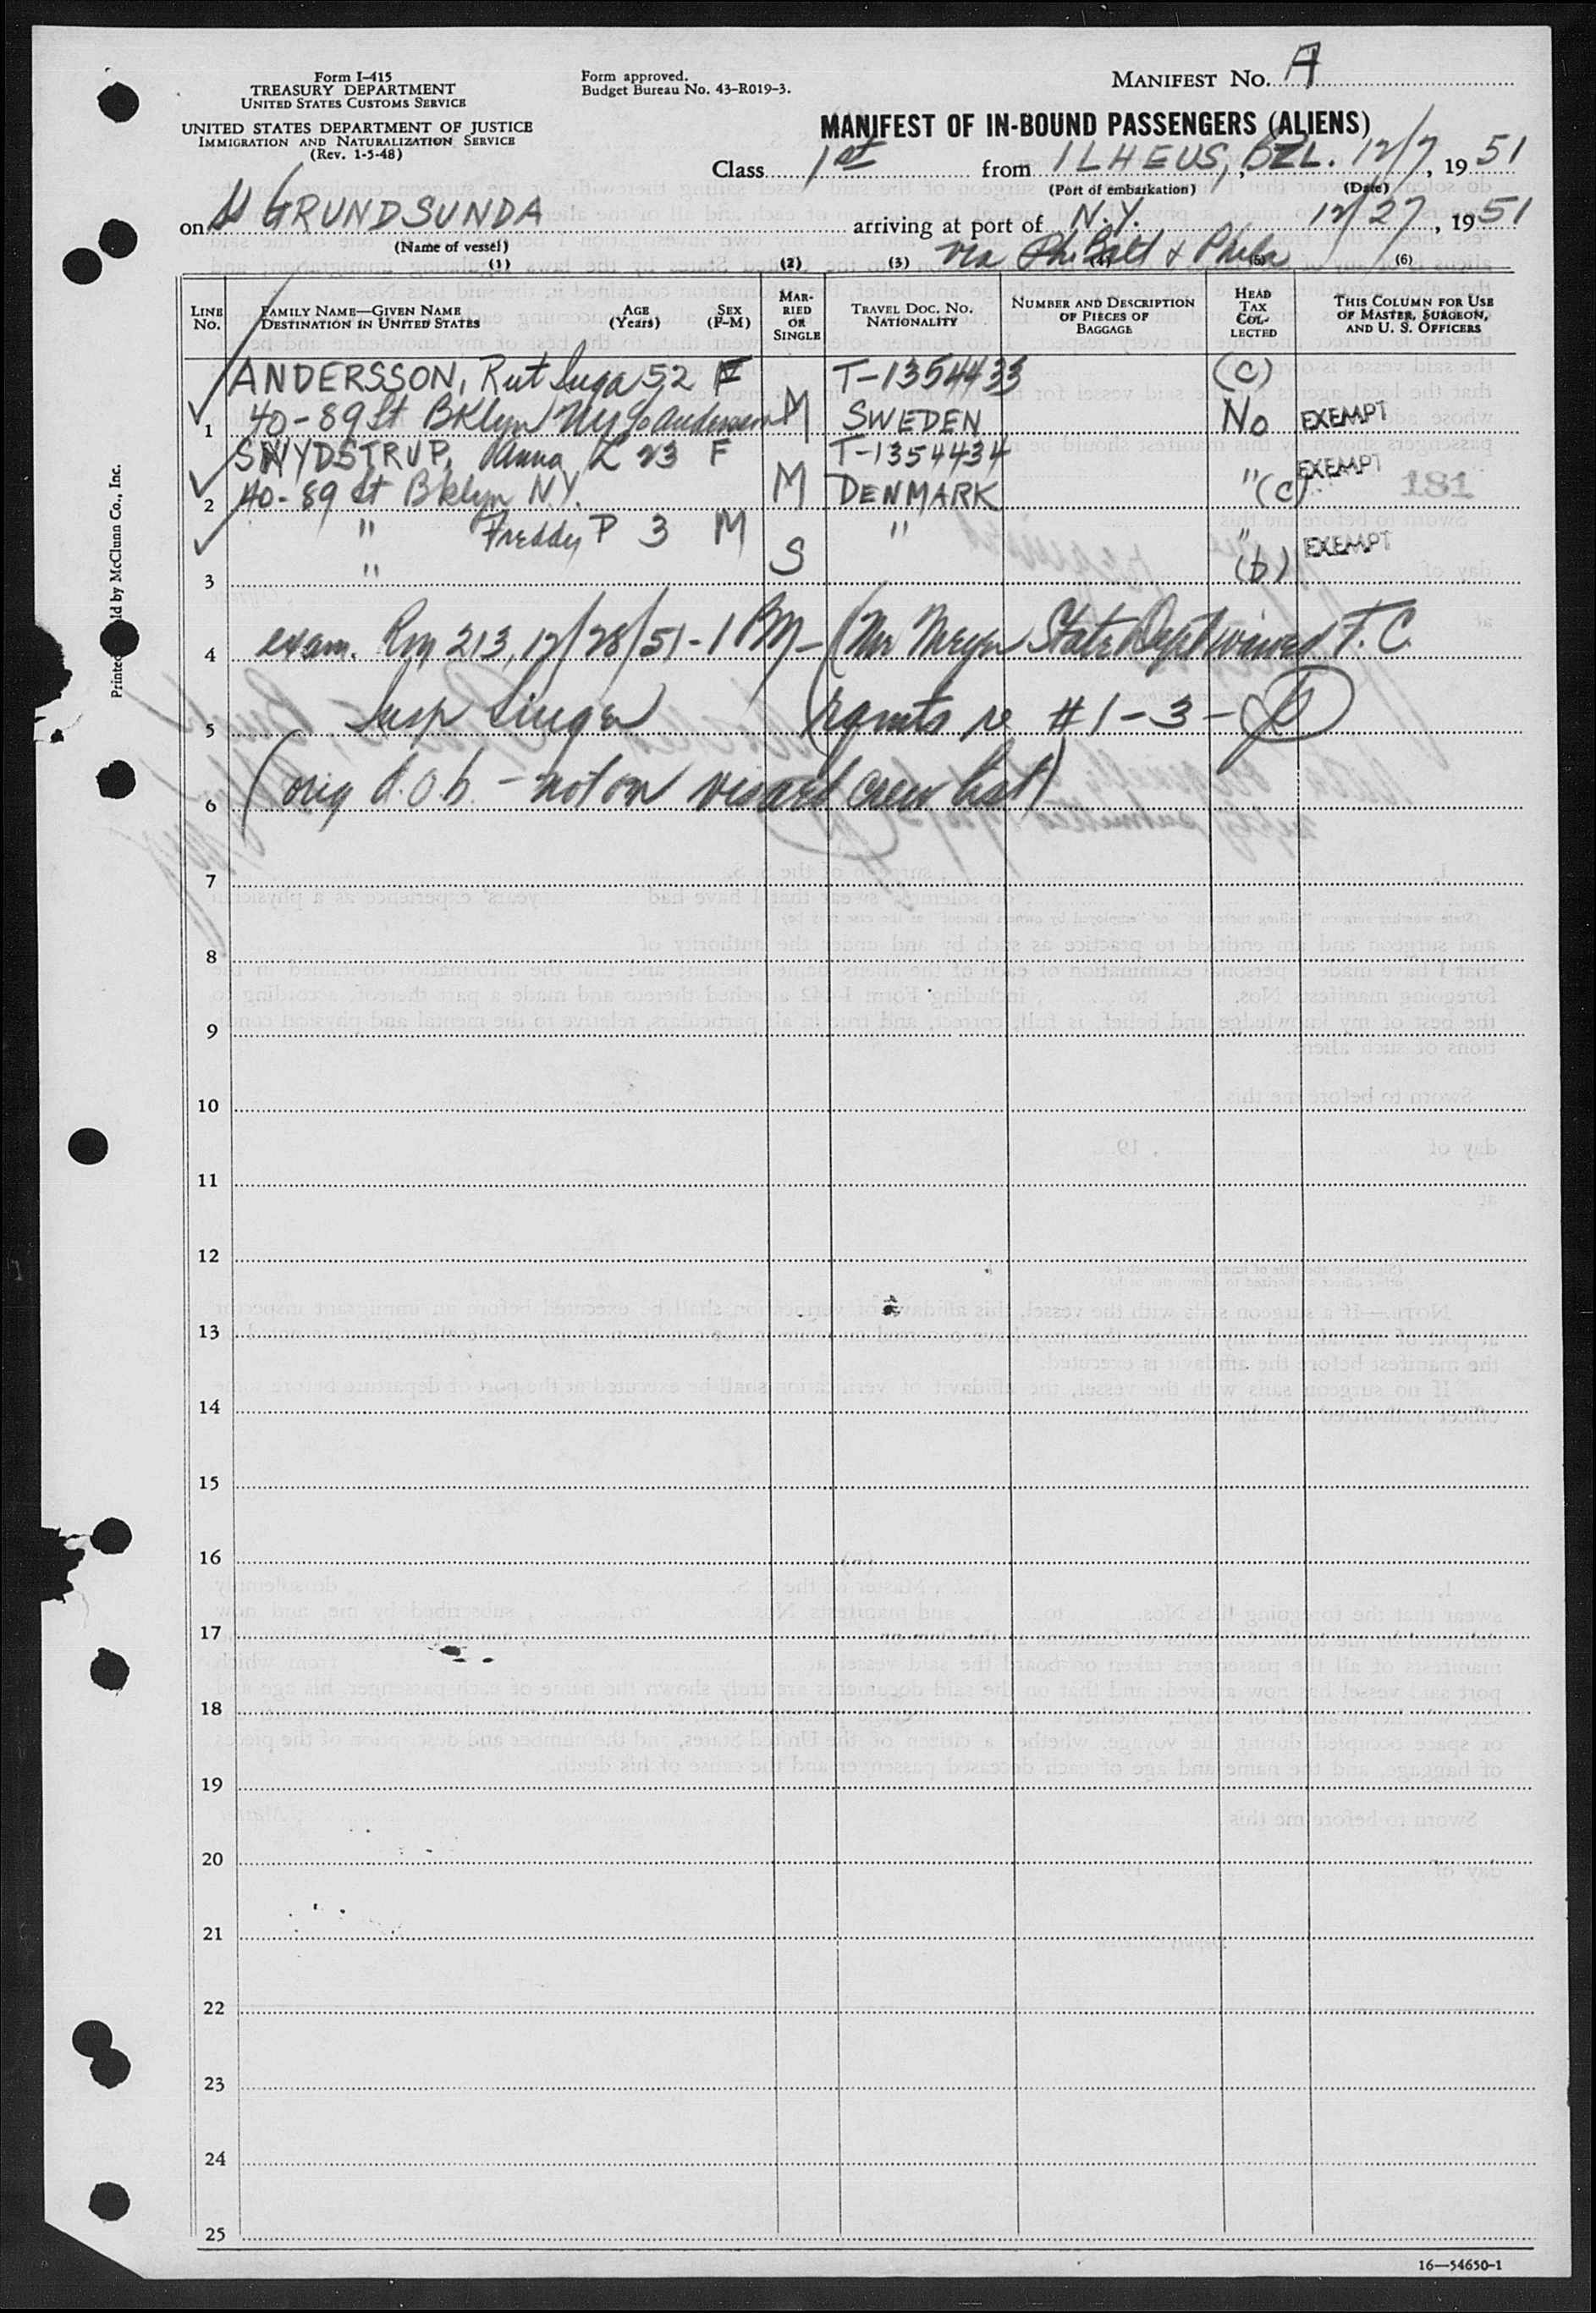 Form I-415
TREASURY DEPARTMENT
UNITED STATES CUSTOMS SERVICE
UNITED STATES DEPARTMENT OF JUSTICE
IMMIGRATION AND NATURALIZATION SERVICE
(Rev. 1-5-48)
Form approved.
Budget Bureau No. 43-R019-3.
MANIFEST NO. A
MANIFEST OF IN-BOUND PASSENGERS (ALIENS)
Class 1st from ILHEUS, BZL. 12/7, 1951
(Port of embarkation) (Date)
on GRUNDSUNDA arriving at port of N.Y. 12/27, 1951
(Name of vessel)
via Balt & Phila
(1) (2) (3) (4) (5) (6)
LINE No.
FAMILY NAME—GIVEN NAME
DESTINATION IN UNITED STATES
AGE (Years)
SEX (F-M)
MARRIED OR SINGLE
TRAVEL DOC. NO.
NATIONALITY
NUMBER AND DESCRIPTION OF PIECES OF BAGGAGE
HEAD TAX COLLECTED
THIS COLUMN FOR USE OF MASTER, SURGEON, AND U. S. OFFICERS
ANDERSSON, Rut Inga 52 F T-1354433 (c)
1 40-89 St Bklyn NY c/o Andersson M SWEDEN No EXEMPT
SNYDSTRUP, Anna K 23 F T-1354434
2 40-89 St Bklyn N.Y. M DENMARK " (c) EXEMPT 181
" Freddy P 3 M "
3 " S " (b) EXEMPT
4 exam. Rm 213, 12/28/51 - 1 PM - (Mr Meyer State Dept waived F. C.
5 Insp Singer rqmts re # 1-3 -
6 (orig d.o.b. - not on visaed crew list)
7
8
9
10
11
12
13
14
15
16
17
18
19
20
21
22
23
24
25
16—54650-1
by McClunn Co., Inc.